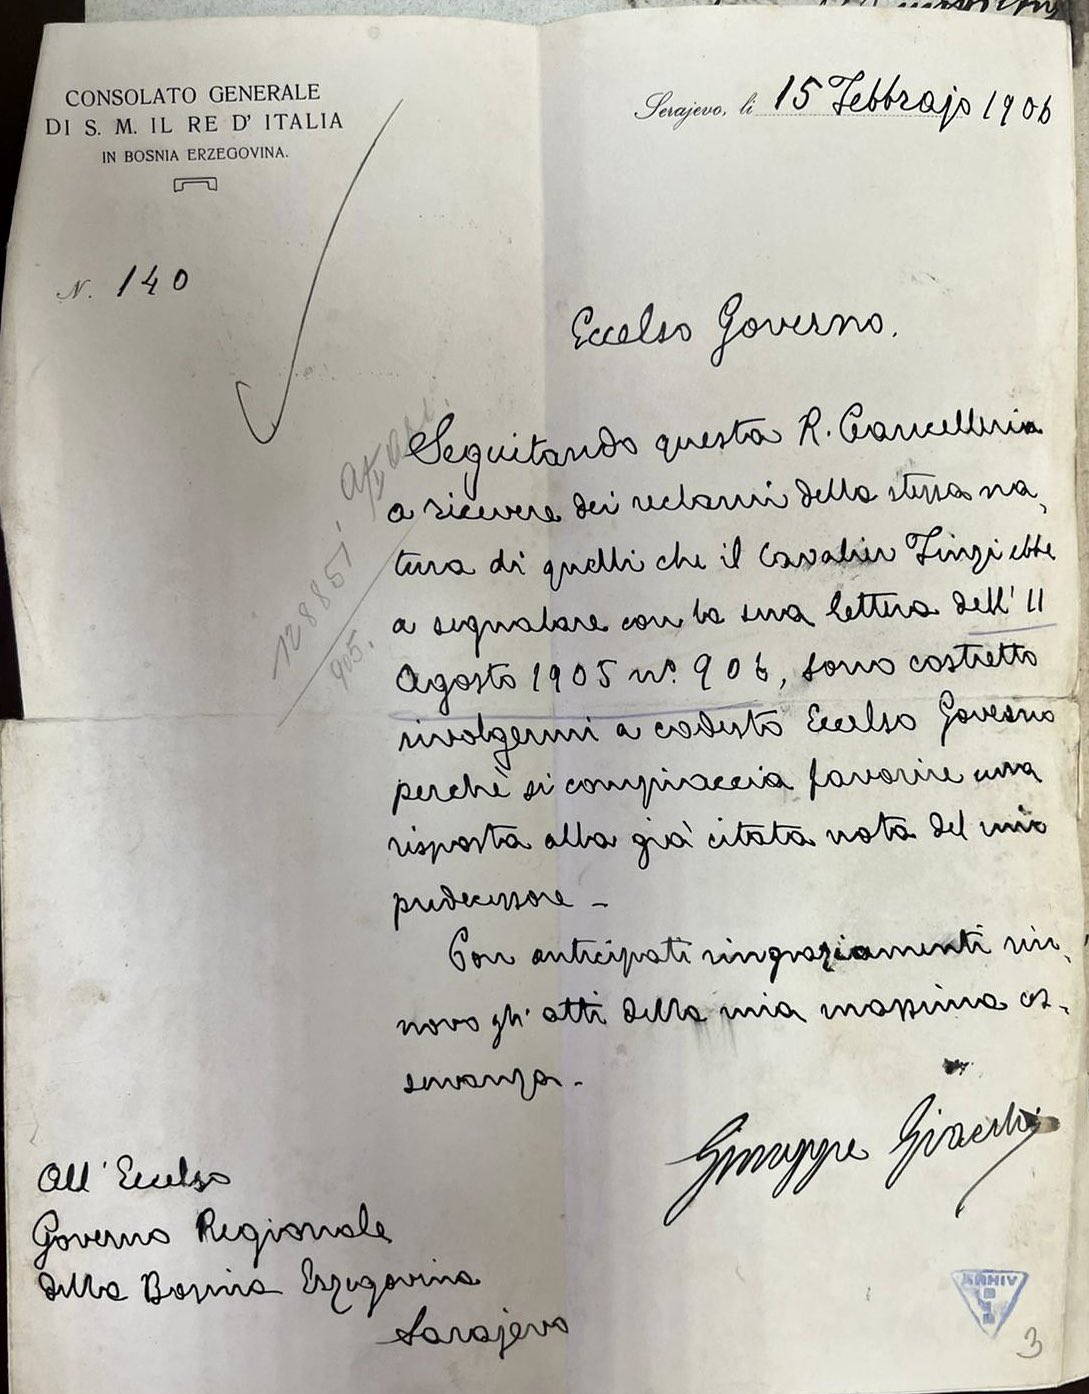 CONSOLATO GENERALE
DI S. M. IL RE D' ITALIA
IN BOSNIA ERZEGOVINA.
Serajevo, li 15 Febbrajo 1906
N. 140
Eccelso Governo.
Seguitando questa R. Cancelleria
a ricevere dei reclami della stessa na-
tura di quelli che il Cavalier Finzi ebbe
a segnalare con la sua lettera dell' 11
Agosto 1905 nº. 906, sono costretto
rivolgermi a codesto Eccelso Governo
perchè si compiaccia favorire una
risposta alla già citata nota del mio
predecessore -
Con anticipati ringraziamenti rin-
novo gli atti della mia massima os-
servanza -
Giuseppe Giacchi
128851
905.
All' Eccelso
Governo Regionale
della Bosnia Erzegovina
Sarajevo
ARHIV
BIH
3